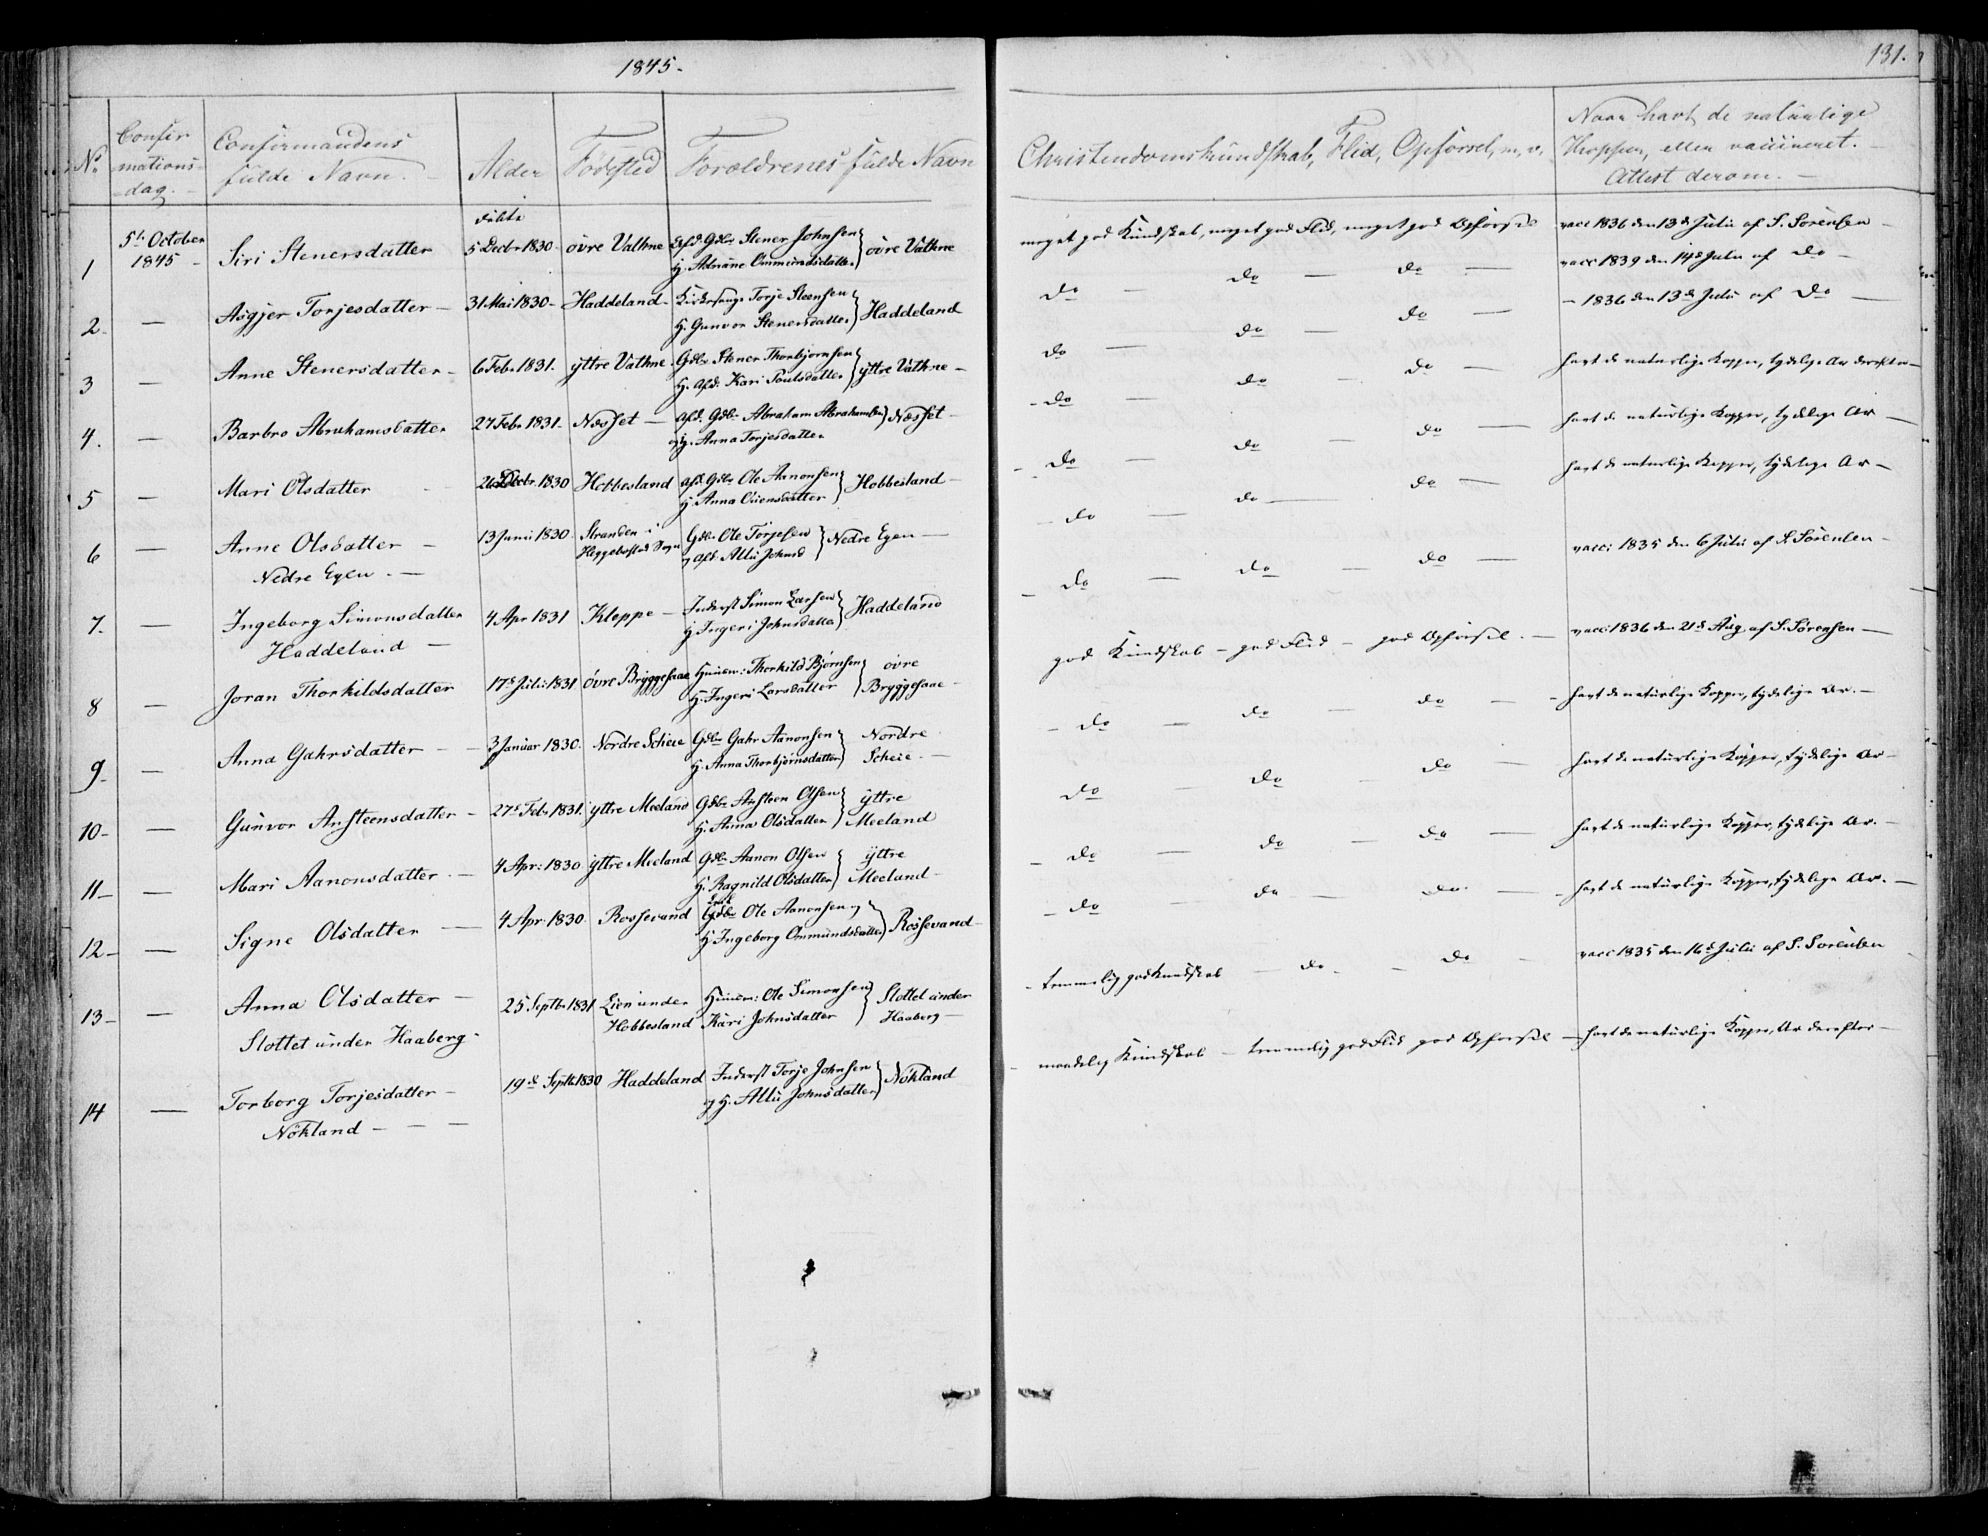 1845.
131.
No
Confirmationsdag.
Confirmandens fulde Navn.
Alder
Fødested
Forældrenes fulde Navn
Christendomskundskab, Flid, Opførsel, m, v.
Naar havt de naturlige Kopper, eller vaccineret. Attest derom.
døbt
1 5te October 1845 - Siri Stenersdatter 5 Decbr 1830 - övre Vathne Gdbr Stener Johnsen H. Adriane Ommundsdatter } övre Vathne meget god Kundskab, meget god Flid, meget god Opførsel vacc 1836 den 13de Julii af S. Sørensen -
2. — Asgjer Torjesdatter — 31 Mai 1830 - Haddeland - Kirkesanger Torje Steensen H. Gunvor Stenersdatter } Haddeland do — do — do — vacc 1839 den 14de Julii af do -
3 — Anne Stenersdatter - 6 Febr 1831. yttre Vathne Gdbr Stener Thorbjørnsen H. afd. Kari Poulsdatter } yttre Vathne - do — do — do — - 1836 den 13de Julii af do —
4. — Barbro Abrahamsdatter 27 Febr 1831. Næsset — afd. Gdbr Abraham Abrahamsen og H. Anna Torjesdatter } Næsset - do — do - do — havt de naturlige Kopper, tydelige Ar derefter -
5 — Mari Olsdatter Decbr 1830 Hobbesland afd. Gdbr Ole Aanonsen H. Anna Ouensdatter } Hobbesland - do — do — do — havt de naturlige Kopper, tydelige Ar —
6 — Anne Olsdatter — Nedre Egen. — 13 Junii 1830 Stranden i Heggebostad Sogn Gdbr Ole Torjesen og afd. Allu Johnsd } Nedre Egen — do — do — do — havt de naturlige Kopper, tydelige Ar —
7. — Ingeborg Simonsdatter Haddeland — 4 Apr 1831 Kleppe - Inderst Simon Larsen H. Ingeri Johnsdatter } Haddeland do — do — do — vacci 1835 den 6 Julii af S. Sørensen -
8 — Joran Thorkildsdatter 17de Juli 1831 övre Bryggesaae Huusm: Thorkild Bjørnsen H. Ingeri Larsdatter } övre Bryggesaae - god Kundskab - god Flid - god Opførsel. — vacci 1836 den 21de Aug af S. Sørensen —
9 — Anna Gahrsdatter — 3 Januar 1830. Nordre Scheie Gdbr Gahr Aanonsen H. Anna Thorbjørnsdatter } Nordre Scheie. — do — do — do — havt de naturlige Kopper, tydelige Ar. —
10 — Gunvor Ansteensdatter - 27de Febr 1831. yttre Meeland Gdbr Ansteen Olsen H. Anna Olsdatter } yttre Meeland do — do — do — havt de naturlige Kopper, tydelige Ar -
11 — Mari Aanonsdatter. — 4 Apr: 1830 yttre Meeland Gdbr Aanon Olsen H. Ragnild Olsdatter } yttre Meeland - do — do — do — havt de naturlige Kopper, tydelige Ar. —
12 — Signe Olsdatter — 4 Apr 1830. Rossevand Gdbr Ole Aanonsen og H. Ingeborg Ommundsdatter } Rossevand - do — do — do. — havt de naturlige Kopper, tydelige Ar. —
13 — Anna Olsdatter — Slottet under Haaberg - 25 Septbr 1831 Lien under Hobbesland Huusm: Ole Simonsen Kari Johnsdatter } Slottet under Haaberg — temmelig god Kundskab — do - do - vacc 1835 den 16de Julii af S. Sørensen
14 — Torborg Torjesdatter - Nökland — 19de Septbr 1830 Haddeland Inderst Torje Johnsen og H. Allu Johnsdatter } Nökland maadelig Kundskab - temmelig god Flid god Opførsel — havt de naturlige Kopper, Ar derefter —